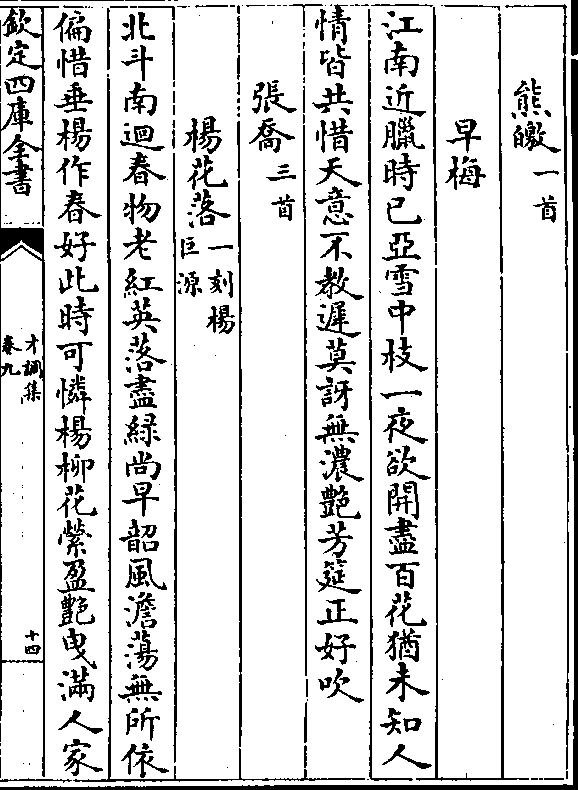 熊皦一首
早梅
江南近臘時已亞雪中枝一夜欲開盡百花猶未知人
情皆共惜天意不教遲莫訝無濃艷芳筵正好吹
張喬三首
楊花落一刻楊巨源
北斗南迴春物老紅英落盡緑尚早韶風澹蕩無所依
偏惜垂楊作春好此時可憐楊柳花縈盈艷曳滿人家
欽定四庫全書
才調集
卷九
十四